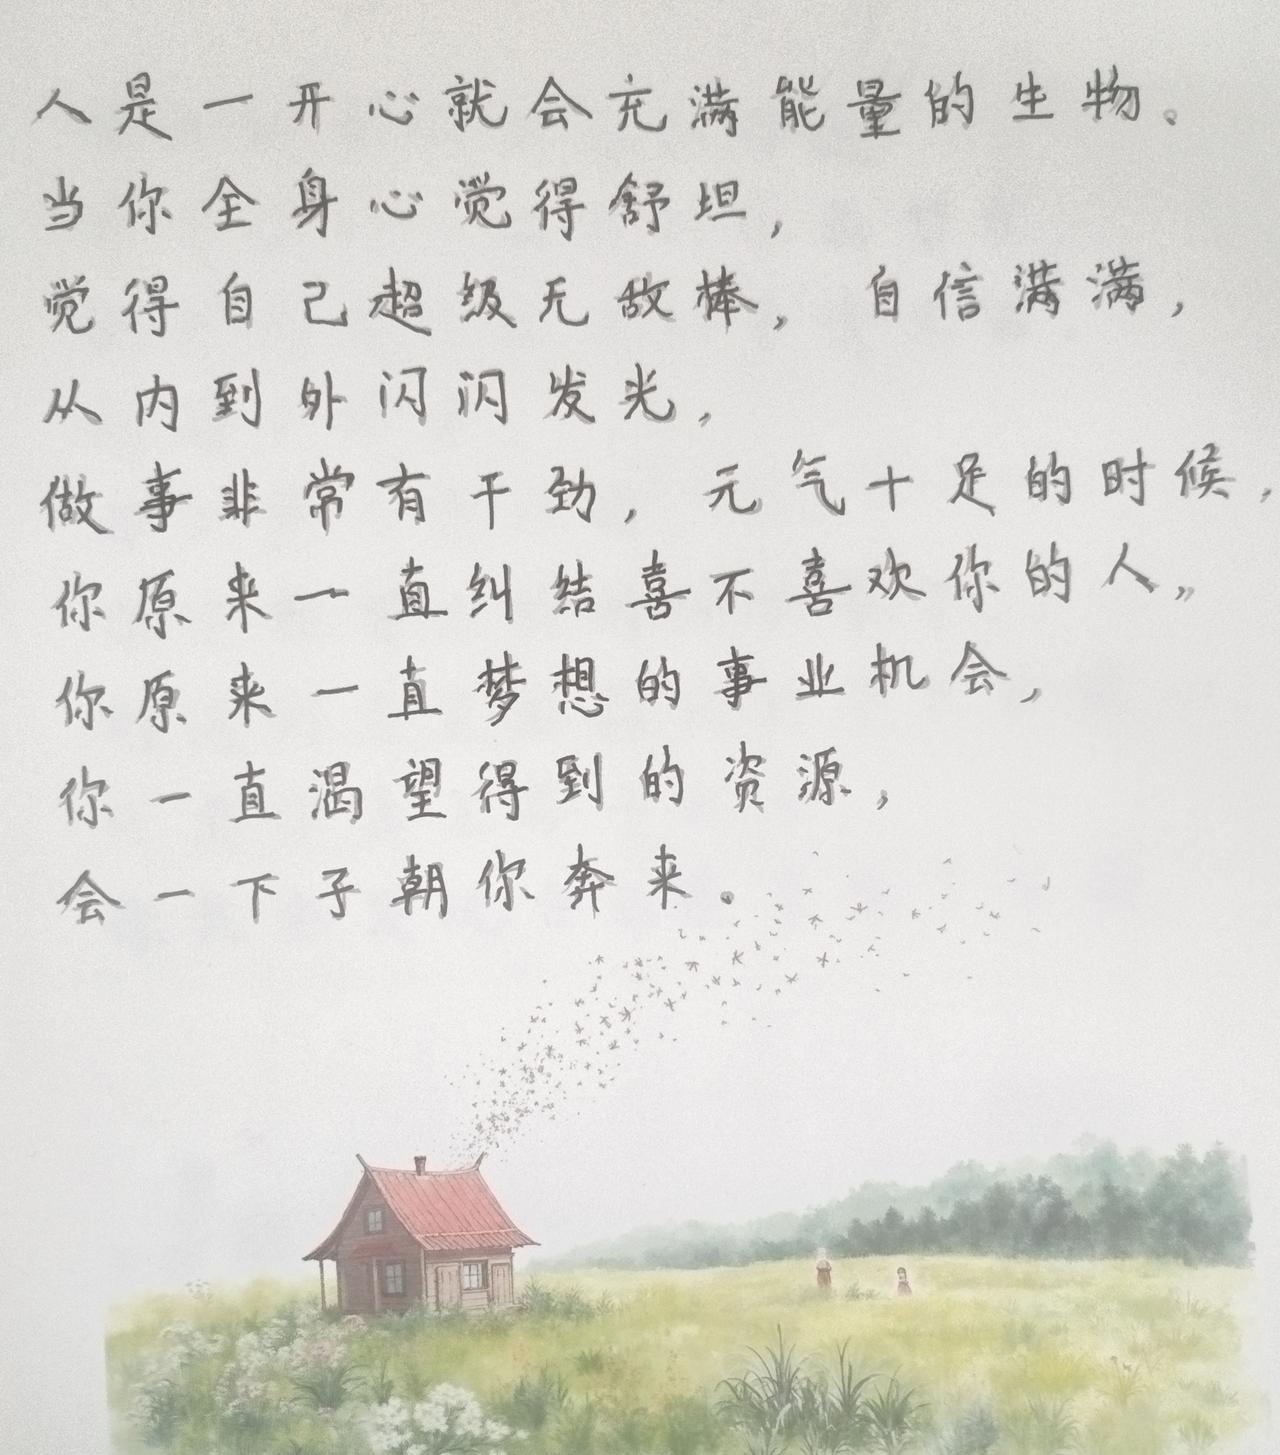 人是一开心就会充满能量的生物。
当你全身心觉得舒坦，
觉得自己超级无敌棒，自信满满，
从内到外闪闪发光，
做事非常有干劲，元气十足的时候，
你原来一直纠结喜不喜欢你的人，
你原来一直梦想的事业机会，
你一直渴望得到的资源，
会一下子朝你奔来。